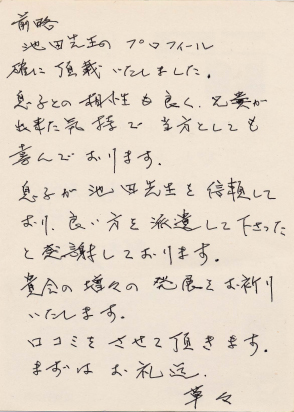 前略
池田先生の プロフィール
確に 頂裁いたしました。
息子との 相性も良く、兄貴が
出来た気持で 当方としても
喜んでおります。
息子が 池田先生を 信頼して
おり、良い方を派遣して下さった
と感謝しております。
貴会の 増々の 発展をお祈り
いたします。
口コミをさせて頂きます。
まずは お礼迄、
草々